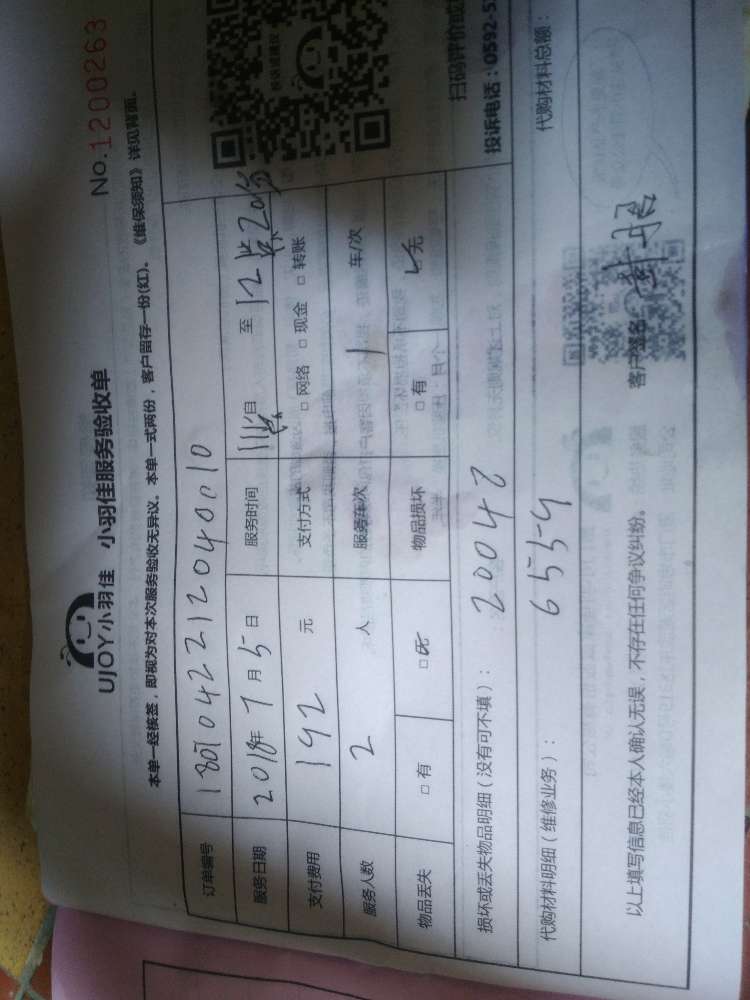 UJOY小羽佳 小羽佳服务验收单
No.1200263
本单一经核签，即视为对本次服务验收无异议。本单一式两份，客户留存一份(红)。《维保须知》详见背面。
订单编号
服务日期 2018年 7 月 5 日 服务时间 自 至
支付费用 192 元 支付方式 □ 网络 □ 现金 □ 转账
服务人数 2 人 服务车次 1 车/次
物品丢失 □ 有 □ 无 物品损坏 □ 有 无
损坏或丢失物品明细（没有可不填）： 20042
代购材料明细（维修业务）： 6554 代购材料总额：
以上填写信息已经本人确认无误，不存在任何争议纠纷。 客户签名：
投诉或建议
扫码评价或
投诉电话：0592-5